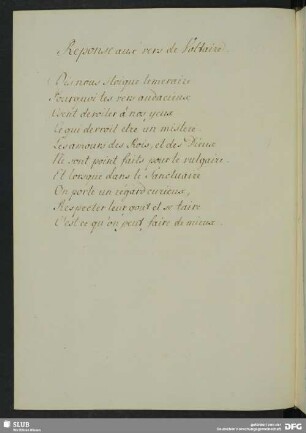 Réponse aux vers de Voltaire
Dis nous stoïque temeraire
Pourquoi tes vers audacieux
Osent devoiler à nos yeux
Ce qui devroit etre un mistere
Les amours des Rois, et des Dieux
Ne sont point faits pour le vulgaire
Et lorsque dans le Sanctuaire
On porte un regard curieux,
Respecter leur gout et se taire
C'est ce qu'on peut faire de mieux.
SLUB
DFG